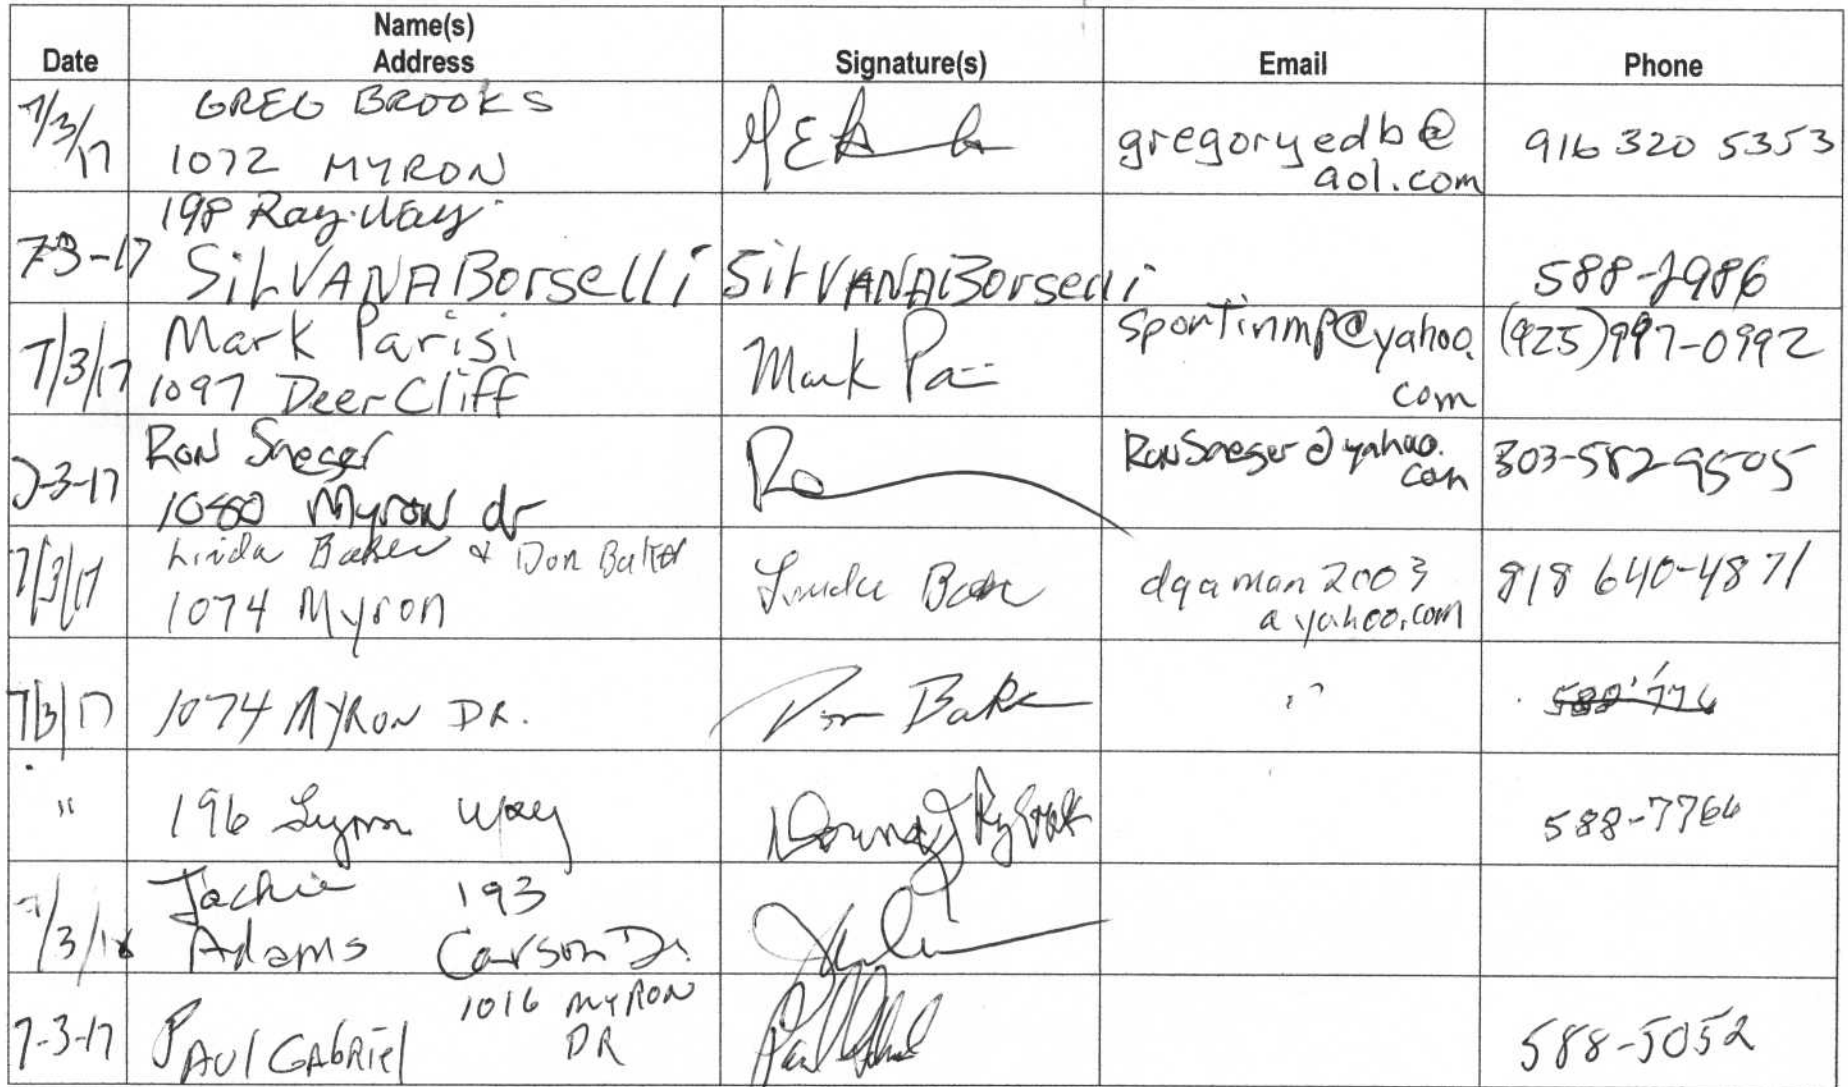 Date
Name(s)
Address
Signature(s)
Email
Phone
7/3/17
GREG BROOKS
1072 MYRON
gregoryedb@
aol.com
916 320 5353
198 Ray Way
7-3-17
SILVANA Borselli
SILVANA Borselli
588-2986
7/3/17
Mark Parisi
1097 Deer Cliff
Mark
sportinmp@yahoo.
com
(925)997-0992
7-3-17
Ron Saeger
1080 Myron dr
RonSaeger@yahoo.
com
303-582-9505
7/3/17
Linda Baker & Don Baker
1074 Myron
Linda
dqaman2003
a yahoo.com
818 640-4871
7/3/17
1074 MYRON DR.
Don Baker
"
"
196 Lynn Way
Donna J Rybak
588-7766
7/3/
Jackie 193
Adams Carson Dr.
7-3-17
PAUL GABRIEL
1016 MYRON
DR
Paul
588-5052